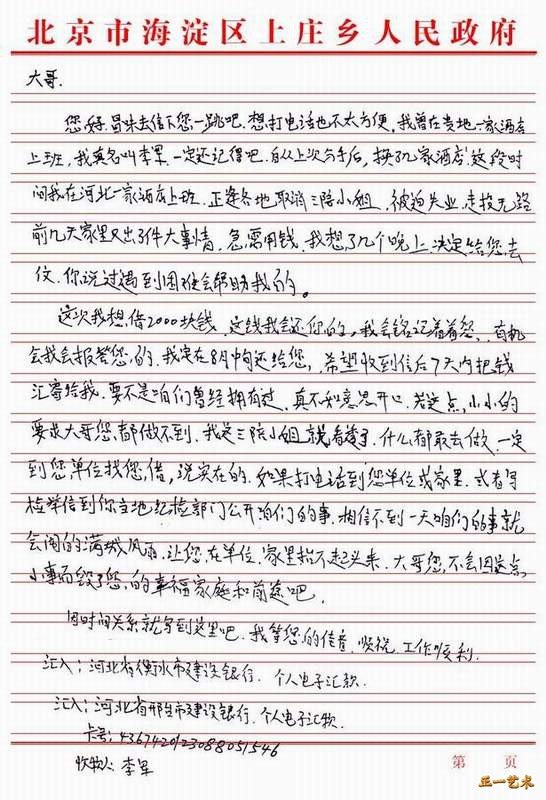 北京市海淀区上庄乡人民政府
大哥.
您好.冒昧去信吓您一跳吧.想打电话也不太方便,我曾在贵地一家酒店
上班,我真名叫李军.一定还记得吧.自从上次分手后,换了几家酒店.这段时
间我在河北一家酒店上班.正逢各地取消三陪小姐.被迫失业,走投无路
前几天家里又出了件大事情.急需用钱.我想了几个晚上.决定给您去
信.你说过遇到困难会帮助我的。
这次我想借2000块钱.这钱我会还你的,我会铭记着您.有机
会我会报答您的.我定在8月中旬还给您,希望收到信后7天内把钱
汇寄给我.要不是咱们曾经拥有过.真不好意思开口.若这点小小的
要求大哥您都做不到.我是三陪小姐就看贱了.什么都敢去做.一定
到您单位找您借,说实在的.如果打电话到您单位或家里.或者写
检举信到你当地纪检部门公开咱们的事.相信不到一天咱们的事就
会闹的满城风雨.让您在单位.家里抬不起头来.大哥您不会因这点
小事而毁了您的幸福家庭和前途吧.
因时间关系就写到这里吧.我等您的佳音.顺祝.工作顺利.
汇入:河北省衡水市建设银行.个人电子汇款.
汇入:河北省邢台市建设银行.个人电子汇款.
卡号:4367420123088051546
收款人 李军
第 页
正一艺术